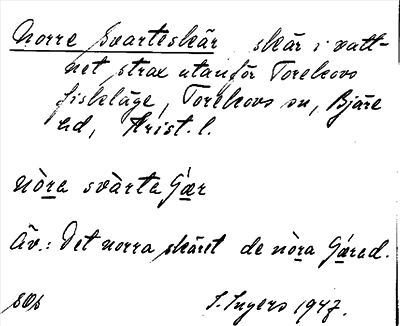 Norre Svarteskär skär i vatt-
net strax utanför Torekovs
fiskläge, Torekovs sn, Bjäre
hd, Krist. l.
nòra svàrta
Äv.: Det norra skäret de nòra
S. Ingers 1947.